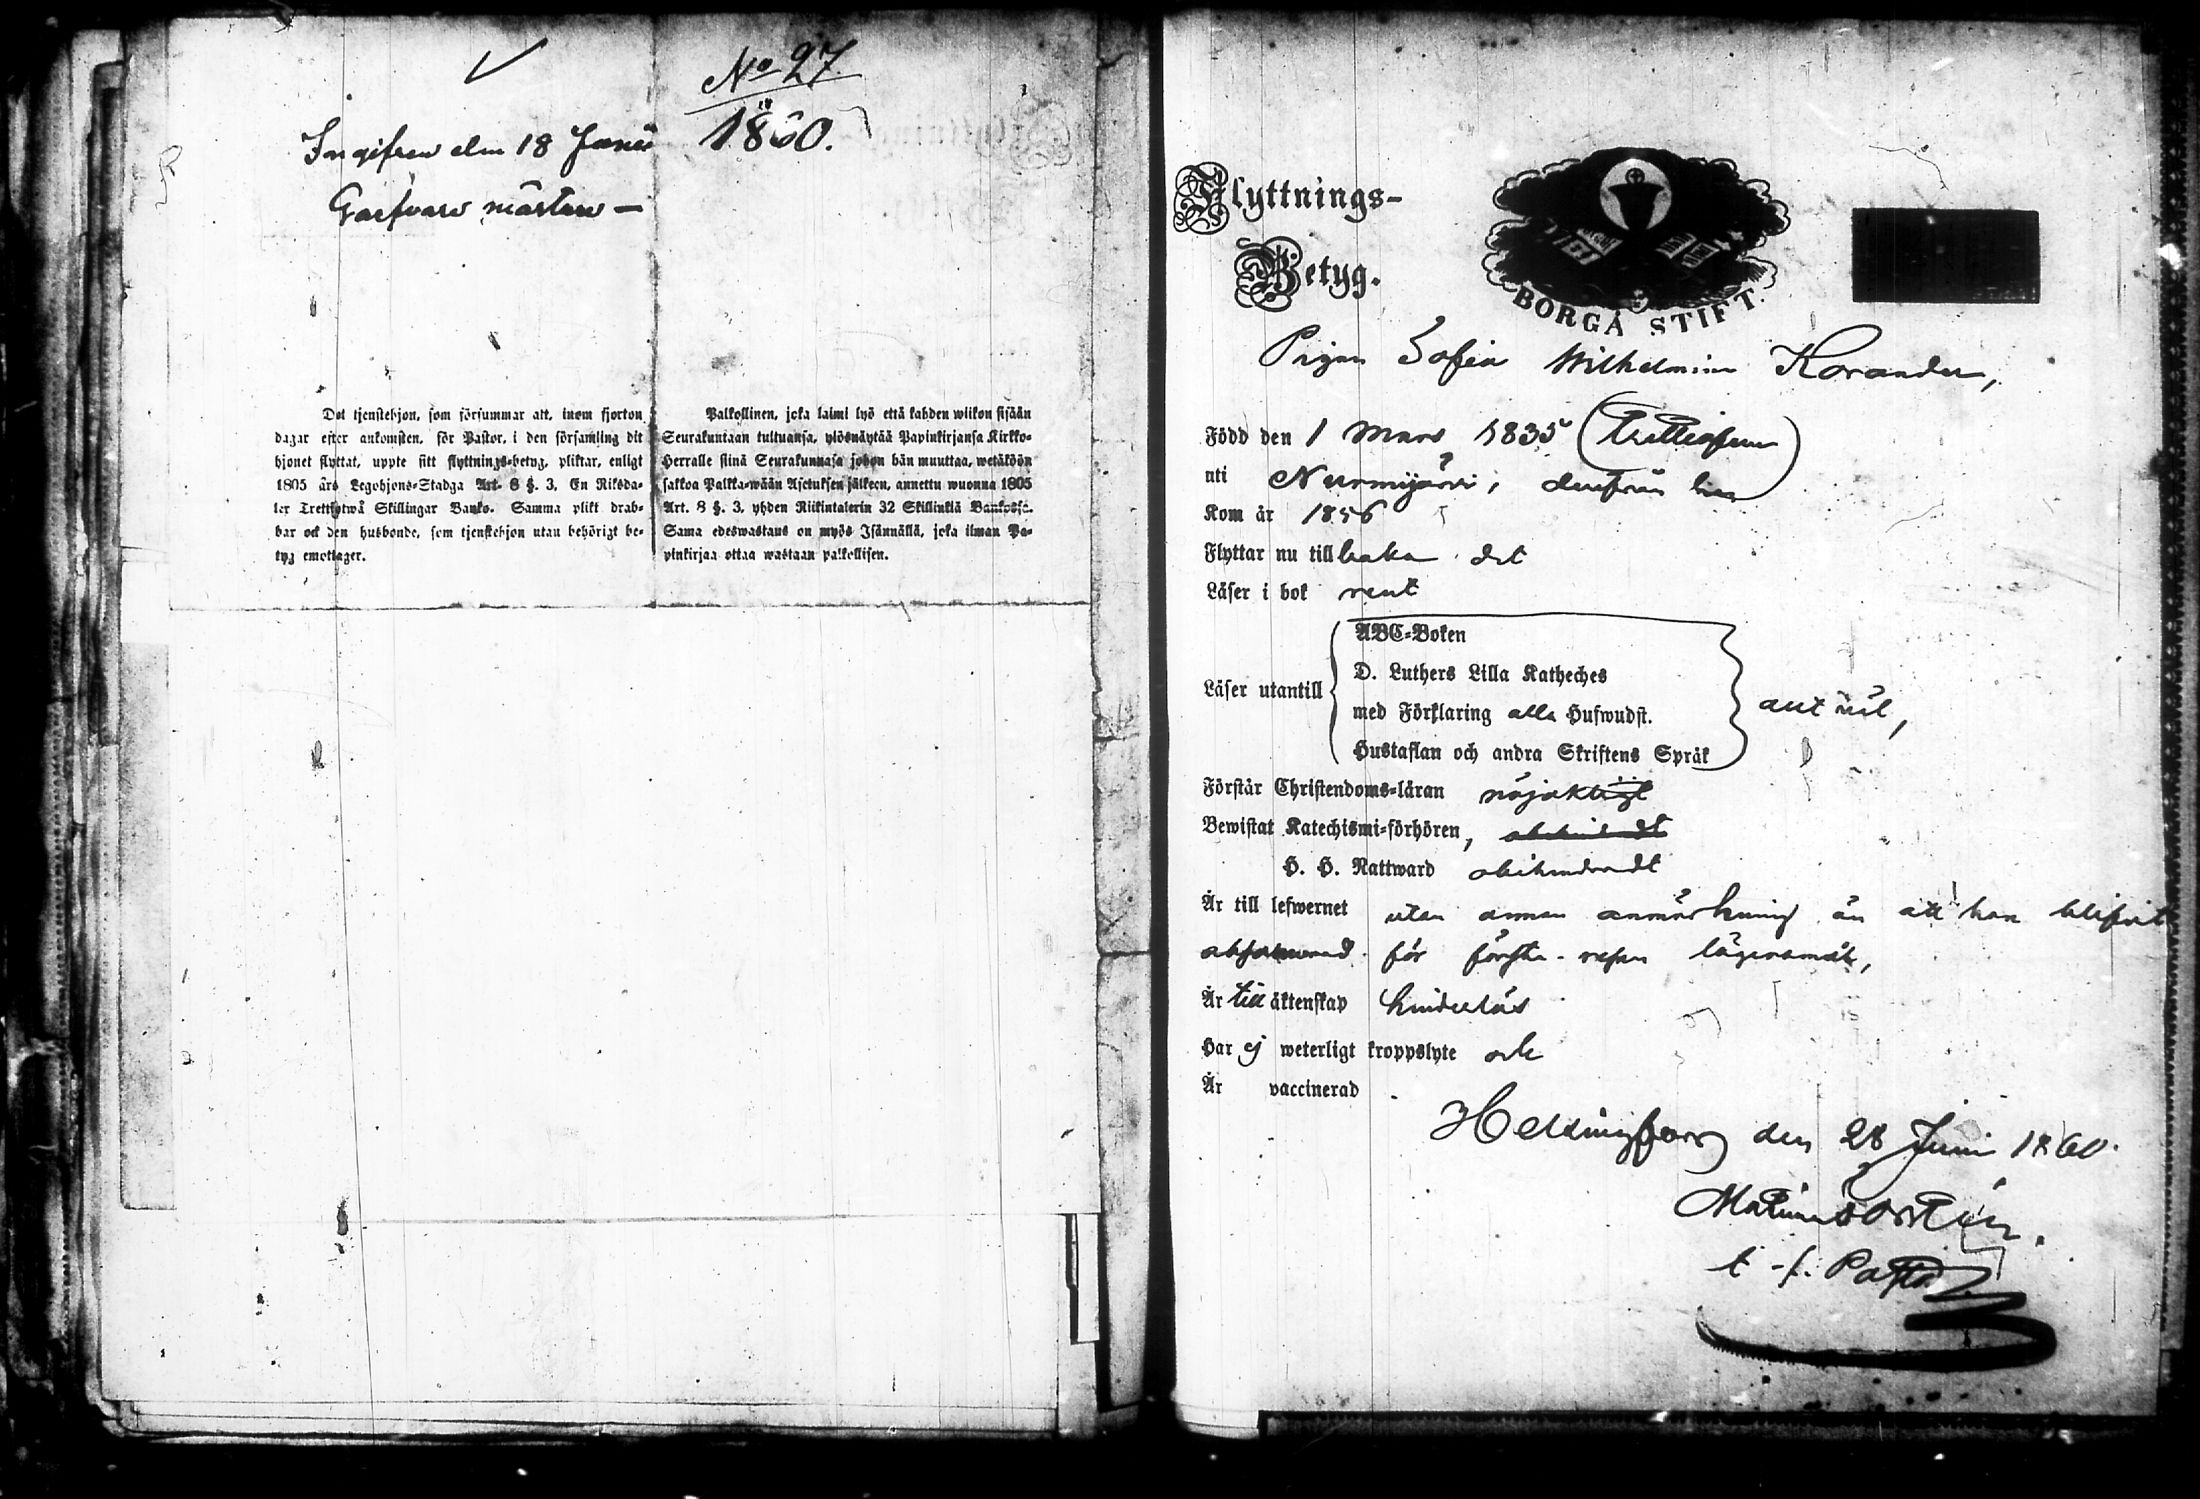 No 27.
1860.
den 18
Det tjenstehjon, som försummar att, inom fjorton
dagar efter ankomsten, för Pastor, i den församling dit
hjonet flyttat, uppte sitt flyttnings-betyg, pliktar, enligt
1805 års Legohjons-Stadga Art. 8 §. 3, En Riksda-
ler Trettiotwå Skillingar Banko. Samma plikt drab-
bar ock den husbonde, som tjenstehjon utan behörigt be-
tyg emottager.
Palkollinen, joka laimi lyö että kahden wiikon sisään
Seurakuntaan tultuansa, ylösnäytää Papinkirjansa Kirkko-
Herralle siinä Seurakunnasa johon hän muuttaa, wetäköön
sakkoa Palkka-wään Asetuksen jälkeen, annettu wuonna 1805
Art. 8 §. 3, yhden Riikintalerin 32 Skillinkiä Bankossa.
Sama edeswastaus on myös Isännällä, joka ilman Pa-
pinkirjaa ottaa wastaan palkollisen.
Flyttnings-
Betyg.
BORGÅ STIFT.
Pigan Sofia Wilhelmina Korander,
Född den 1 Mars 1835
uti Nurmijärvi, derifrån hon
Kom år 1856
Flyttar nu till baka dit
Läser i bok rent
Läser utantill
ABC-Boken
D. Luthers Lilla Katheches
med Förklaring alla Hufwudst.
Hustaflan och andra Skriftens Språk
Förstår Christendoms-läran nöjaktigt
Bewistat Katechismi-förhören,
H. H. Nattward obehindradt
Är till lefwernet utan annan anmärkning än att hon blifvit
för första resan lägersmål,
Är till äktenskap hinderlös
Har ej weterligt kroppslyte och
Är vaccinerad
Helsingfors den 28 Juni 1860.
t. f. Pastor